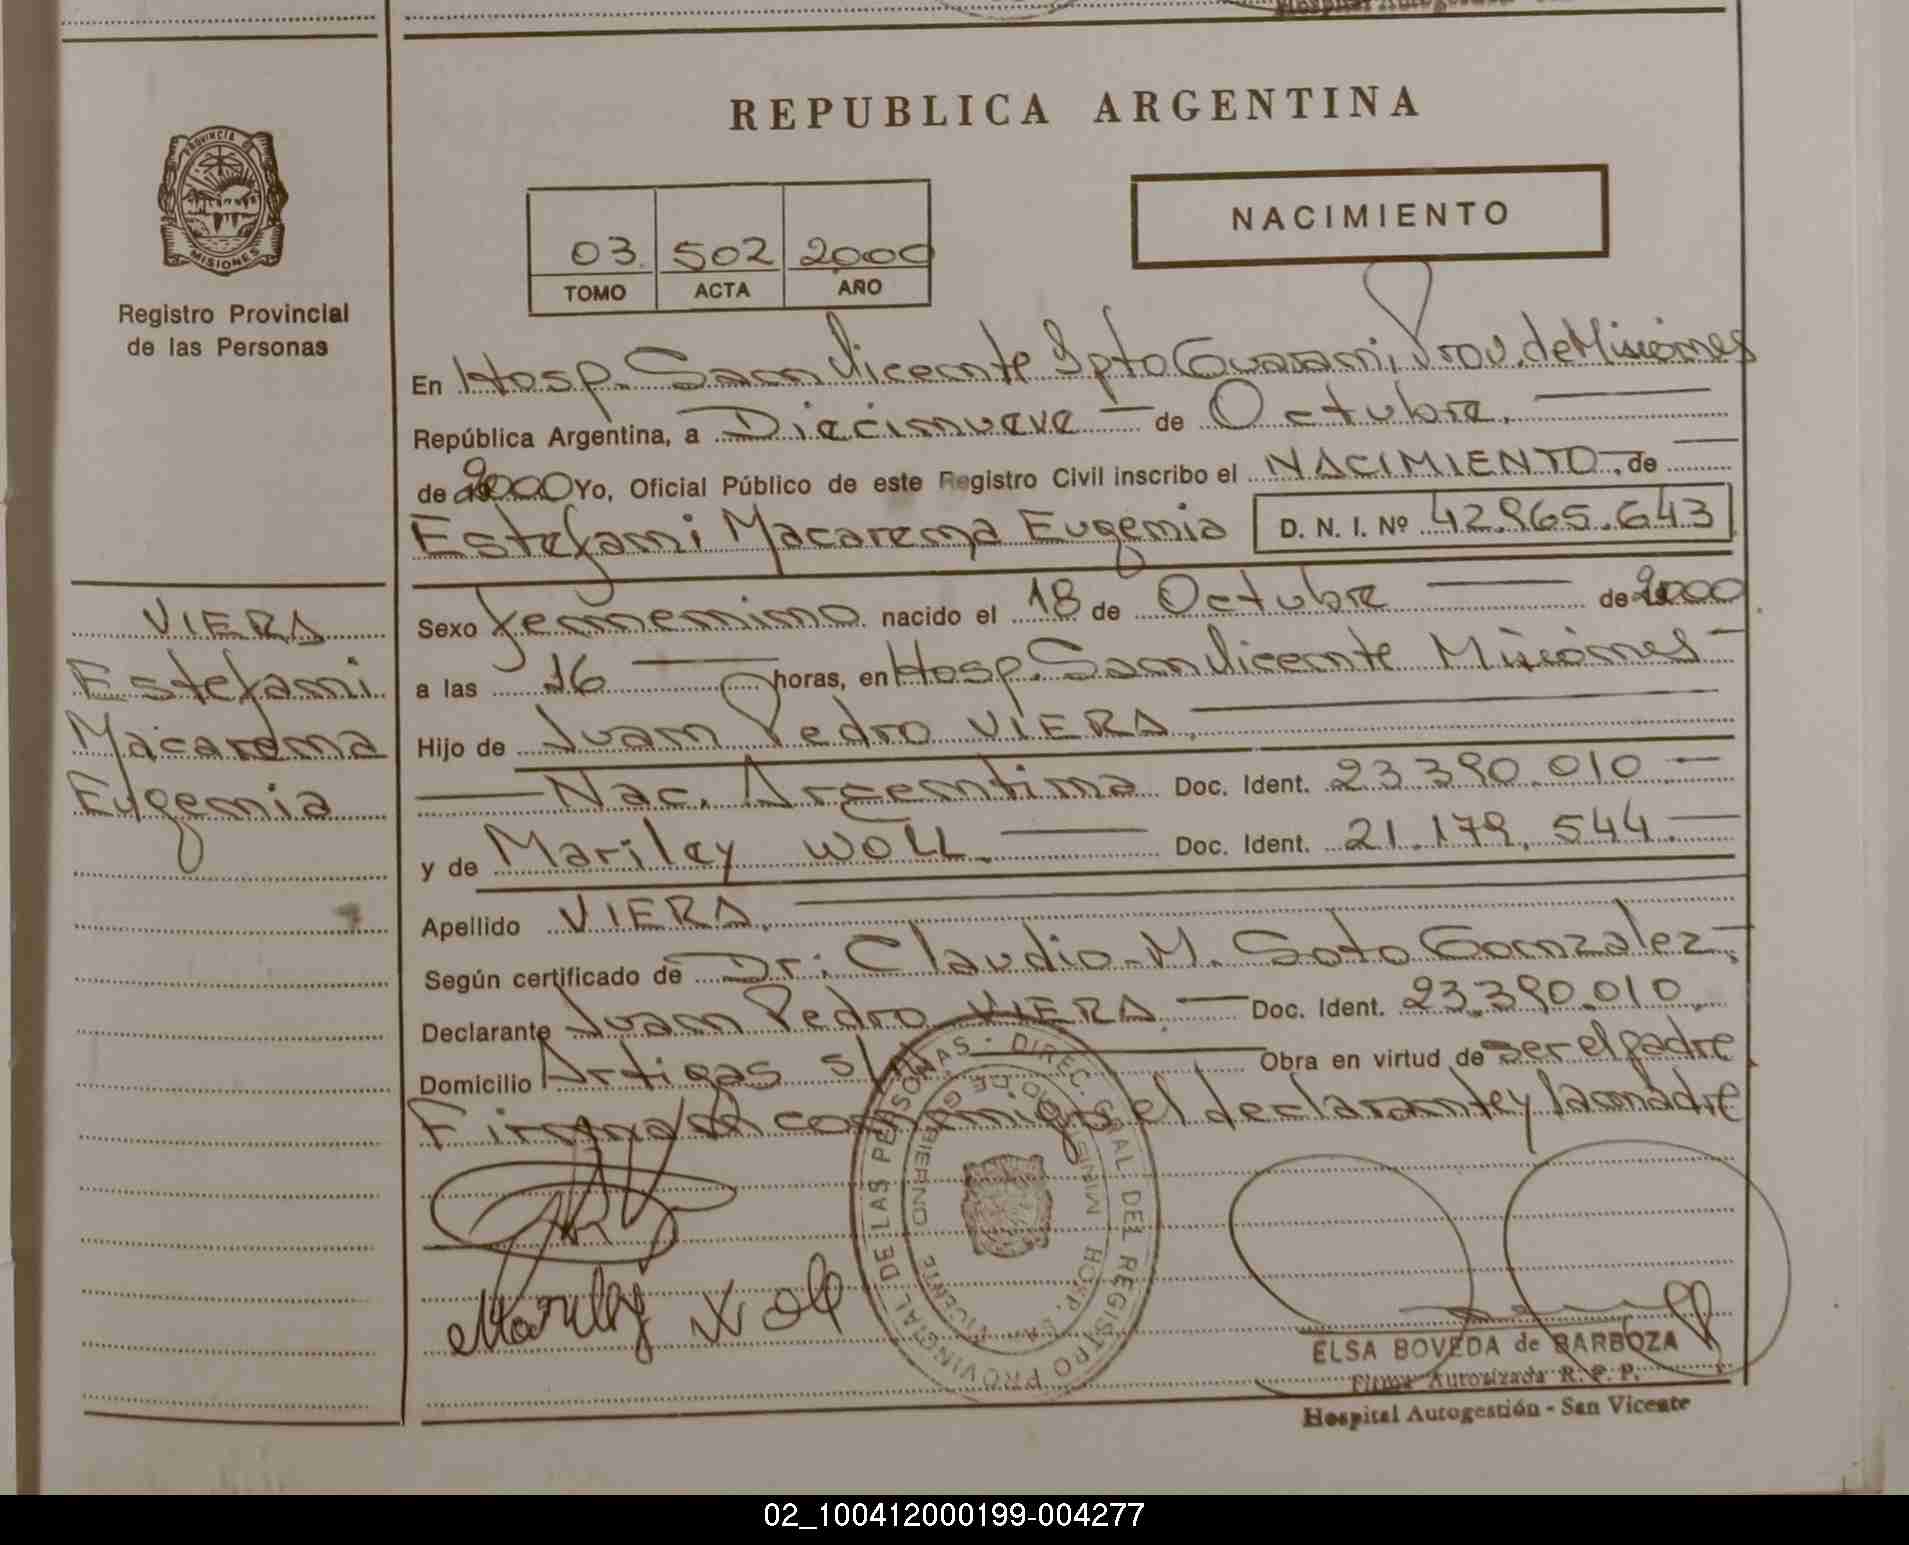 REPUBLICA ARGENTINA
PROVINCIA DE
MISIONES
Registro Provincial
de las Personas
03 502 2000
TOMO ACTA AÑO
NACIMIENTO
En Hosp. San Vicente Dpto Guarani, Prov. de Misiones
República Argentina, a Diecinueve de Octubre.
de 2000 Yo, Oficial Público de este Registro Civil inscribo el NACIMIENTO, de
Estefani Macarena Eugenia D. N. I. Nº 42.965.643
VIERA
Estefani
Macarena
Eugenia
Sexo femenino nacido el 18 de Octubre de 2000
a las 16 horas, en Hosp. San Vicente Misiones
Hijo de Juan Pedro VIERA,
Nac. Argentina Doc. Ident. 23.390.010
y de Mariley WOLL. Doc. Ident. 21.179.544.
Apellido VIERA,
Según certificado de Dr: Claudio M. Soto Gonzalez
Declarante Juan Pedro VIERA. Doc. Ident. 23.390.010,
Domicilio Artigas s/ Obra en virtud de ser el padre
Firman conmigo el declarante y la madre
DIREC. GRAL DEL REGISTRO PROVINCIAL DE LAS PERSONAS
HOSP. VICENTE
GOBIERNO
Mariley Wol
ELSA BOVEDA de BARBOZA
Firma Autorizada R. P. P.
Hospital Autogestión - San Vicente
02_100412000199-004277